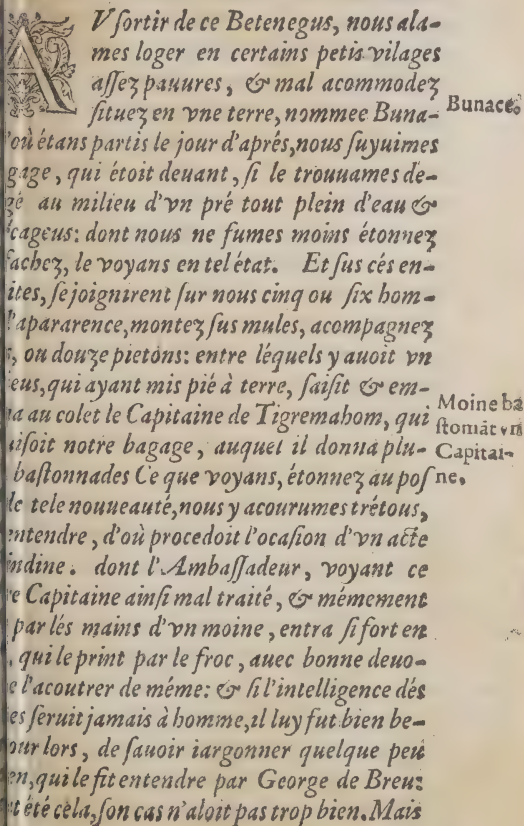 AV sortir de ce Betenegus, nous ala-
mes loger en certains petis vilages
assez pauures, & mal acommodez
situez en vne terre, nommee Buna-
Bunace.
où étans partis le jour d'aprés, nous suyuimes
gage, qui étoit deuant, si le trouuames dé-
gé au milieu d'vn pré tout plein d'eau &
cageus: dont nous ne fumes moins étonnez
fachez, le voyans en tel état. Et sus cés en-
ites, se joignirent sur nous cinq ou six hom-
l'apararence, montez sus mules, acompagnez
s, ou douze pietons: entre léquels y auoit vn
eus, qui ayant mis pié à terre, saisit & em-
na au colet le Capitaine de Tigremahom, qui
uisoit notre bagage, auquel il donna plu-
bastonnades Ce que voyans, étonnez au pos
de tele nouueauté, nous y acourumes trétous,
Moine ba
stomāt vn
Capitai-
ne.
entendre, d'où procedoit l'ocasion d'vn acte
indine. dont l'Ambassadeur, voyant ce
e Capitaine ainsi mal traité, & mémement
par lés mains d'vn moine, entra si fort en
, qui le print par le froc, auec bonne deuo-
e l'acoutrer de méme: & si l'intelligence dés
es seruit jamais à homme, il luy fut bien be-
our lors, de sauoir iargonner quelque peu
en, qui le fit entendre par George de Breuz
t été cela, son cas n'aloit pas trop bien. Mais